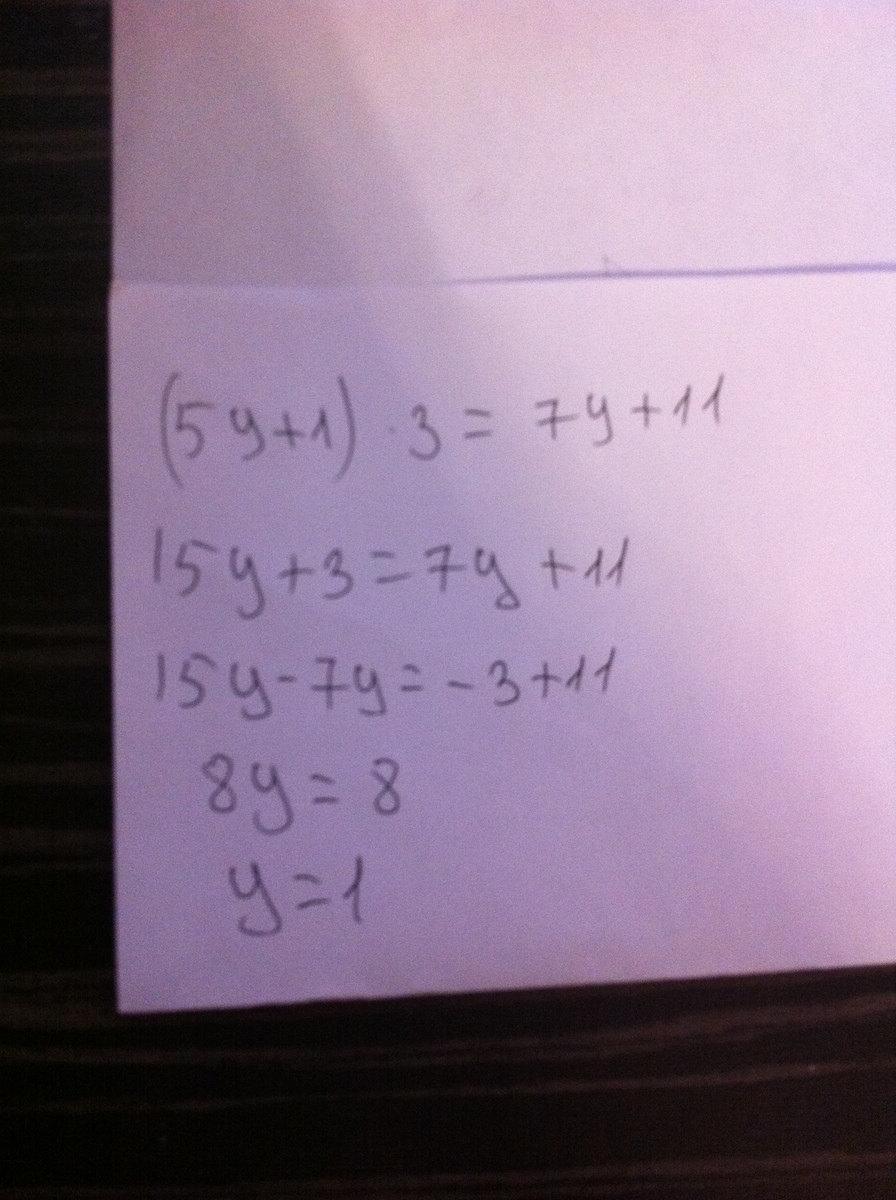 (5y+1) · 3 = 7y+11
15y+3=7y+11
15y-7y=-3+11
8y=8
y=1